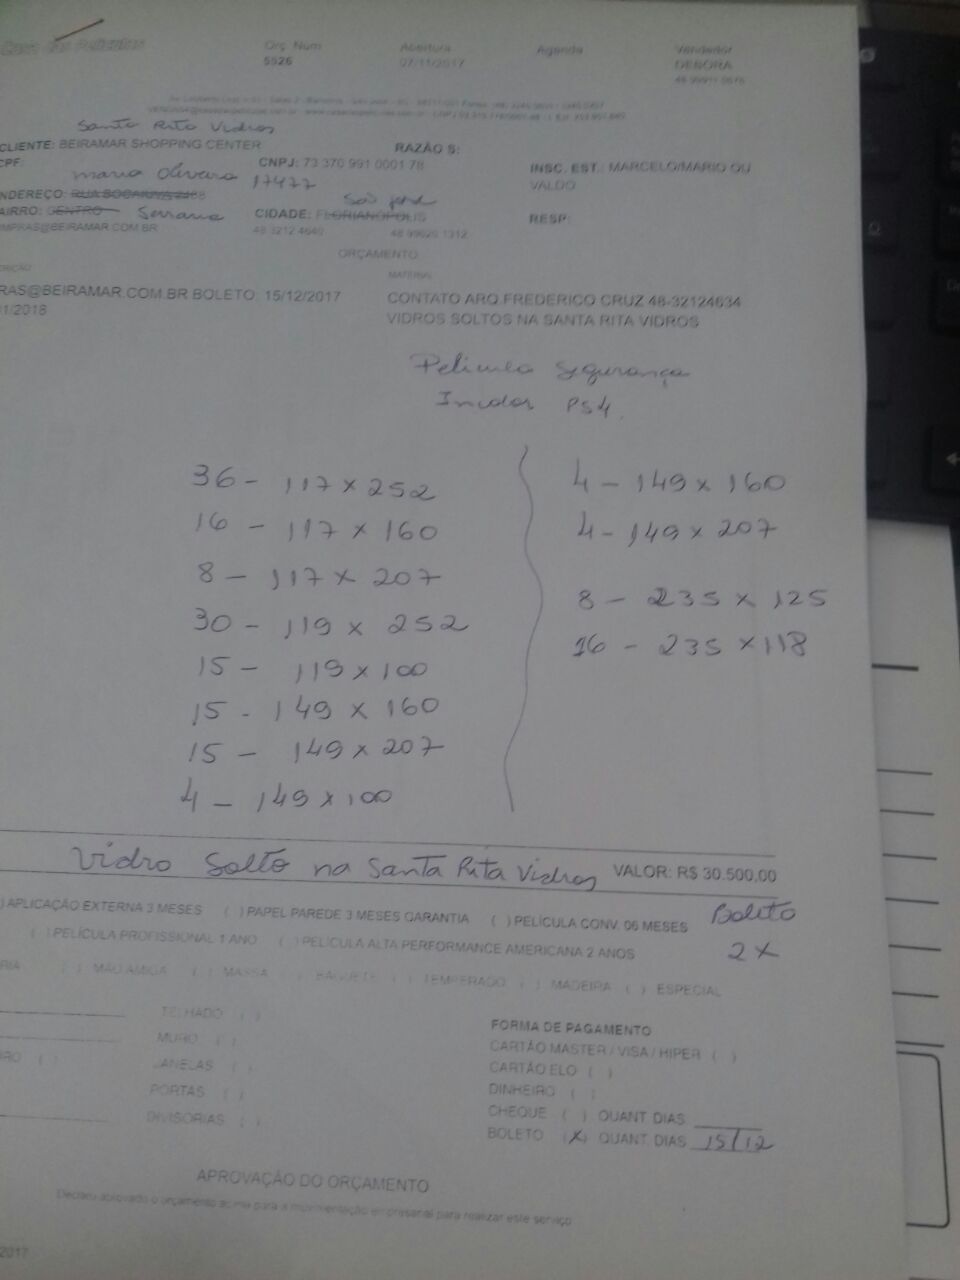 Casa das Películas
Orç Num Abertura Agenda Vendedor
5526 07/11/2017 DEBORA
Santa Rita Vidros
CLIENTE: BEIRAMAR SHOPPING CENTER RAZÃO S:
CPF: CNPJ: 73 370 991 0001 78 INSC. EST.: MARCELO/MARIO OU
VALDO
maria Olivera 17477
NDEREÇO: RUA BOCAIUVA 2468
São José
AIRRO: CENTRO Serraria CIDADE: FLORIANÓPOLIS RESP:
MPRAS@BEIRAMAR.COM.BR 48 3212 4640 48 99620 1312
ORÇAMENTO
MATERIAL
RAS@BEIRAMAR.COM.BR BOLETO: 15/12/2017 CONTATO ARQ.FREDERICO CRUZ 48-32124634
1/2018 VIDROS SOLTOS NA SANTA RITA VIDROS
Película Segurança
Incolor PS4.
36 - 117 x 252
16 - 117 x 160
8 - 117 x 207
30 - 119 x 252
15 - 119 x 100
15 - 149 x 160
15 - 149 x 207
4 - 149 x 100
4 - 149 x 160
4 - 149 x 207
8 - 235 x 125
16 - 235 x 118
Vidro Solto na Santa Rita Vidros VALOR: R$ 30.500,00
) APLICAÇÃO EXTERNA 3 MESES ( ) PAPEL PAREDE 3 MESES GARANTIA ( ) PELÍCULA CONV. 06 MESES Boleto
( ) PELÍCULA PROFISSIONAL 1 ANO ( ) PELÍCULA ALTA PERFORMANCE AMERICANA 2 ANOS 2x
RIA ( ) MÃO AMIGA ( ) MASSA ( ) BAQUETE ( ) TEMPERADO ( ) MADEIRA ( ) ESPECIAL
TELHADO ( )
MURO ( )
RO ( ) JANELAS ( )
PORTAS ( )
DIVISORIAS ( )
FORMA DE PAGAMENTO
CARTÃO MASTER / VISA / HIPER ( )
CARTÃO ELO ( )
DINHEIRO ( )
CHEQUE ( ) QUANT DIAS
BOLETO (X) QUANT. DIAS 15/12
APROVAÇÃO DO ORÇAMENTO
Declaro aprovado o orçamento acima para a movimentação empresarial para realizar este serviço
2017